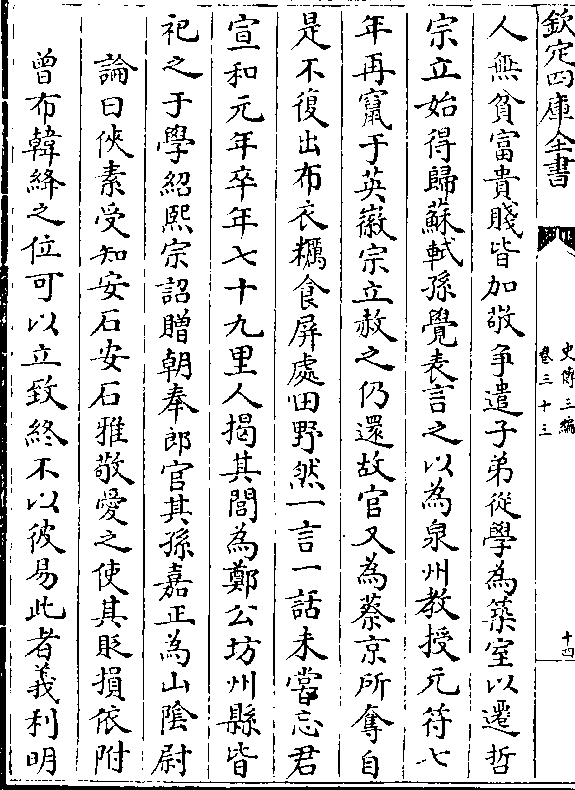 欽定四庫全書
史傳三編
卷三十三
十四
人無貧富貴賤皆加敬爭遣子弟從學為築室以遷哲
宗立始得歸蘇軾孫覺表言之以為泉州教授元符七
年再竄于英徽宗立赦之仍還故官又為蔡京所奪自
是不復出布衣糲食屏處田野然一言一話未嘗忘君
宣和元年卒年七十九里人揭其閭為鄭公坊州縣皆
祀之于學紹熙宗詔贈朝奉郎官其孫嘉正為山隂尉
論曰俠素受知安石安石雅敬愛之使其貶損依附
曾布韓絳之位可以立致終不以彼易此者義利明